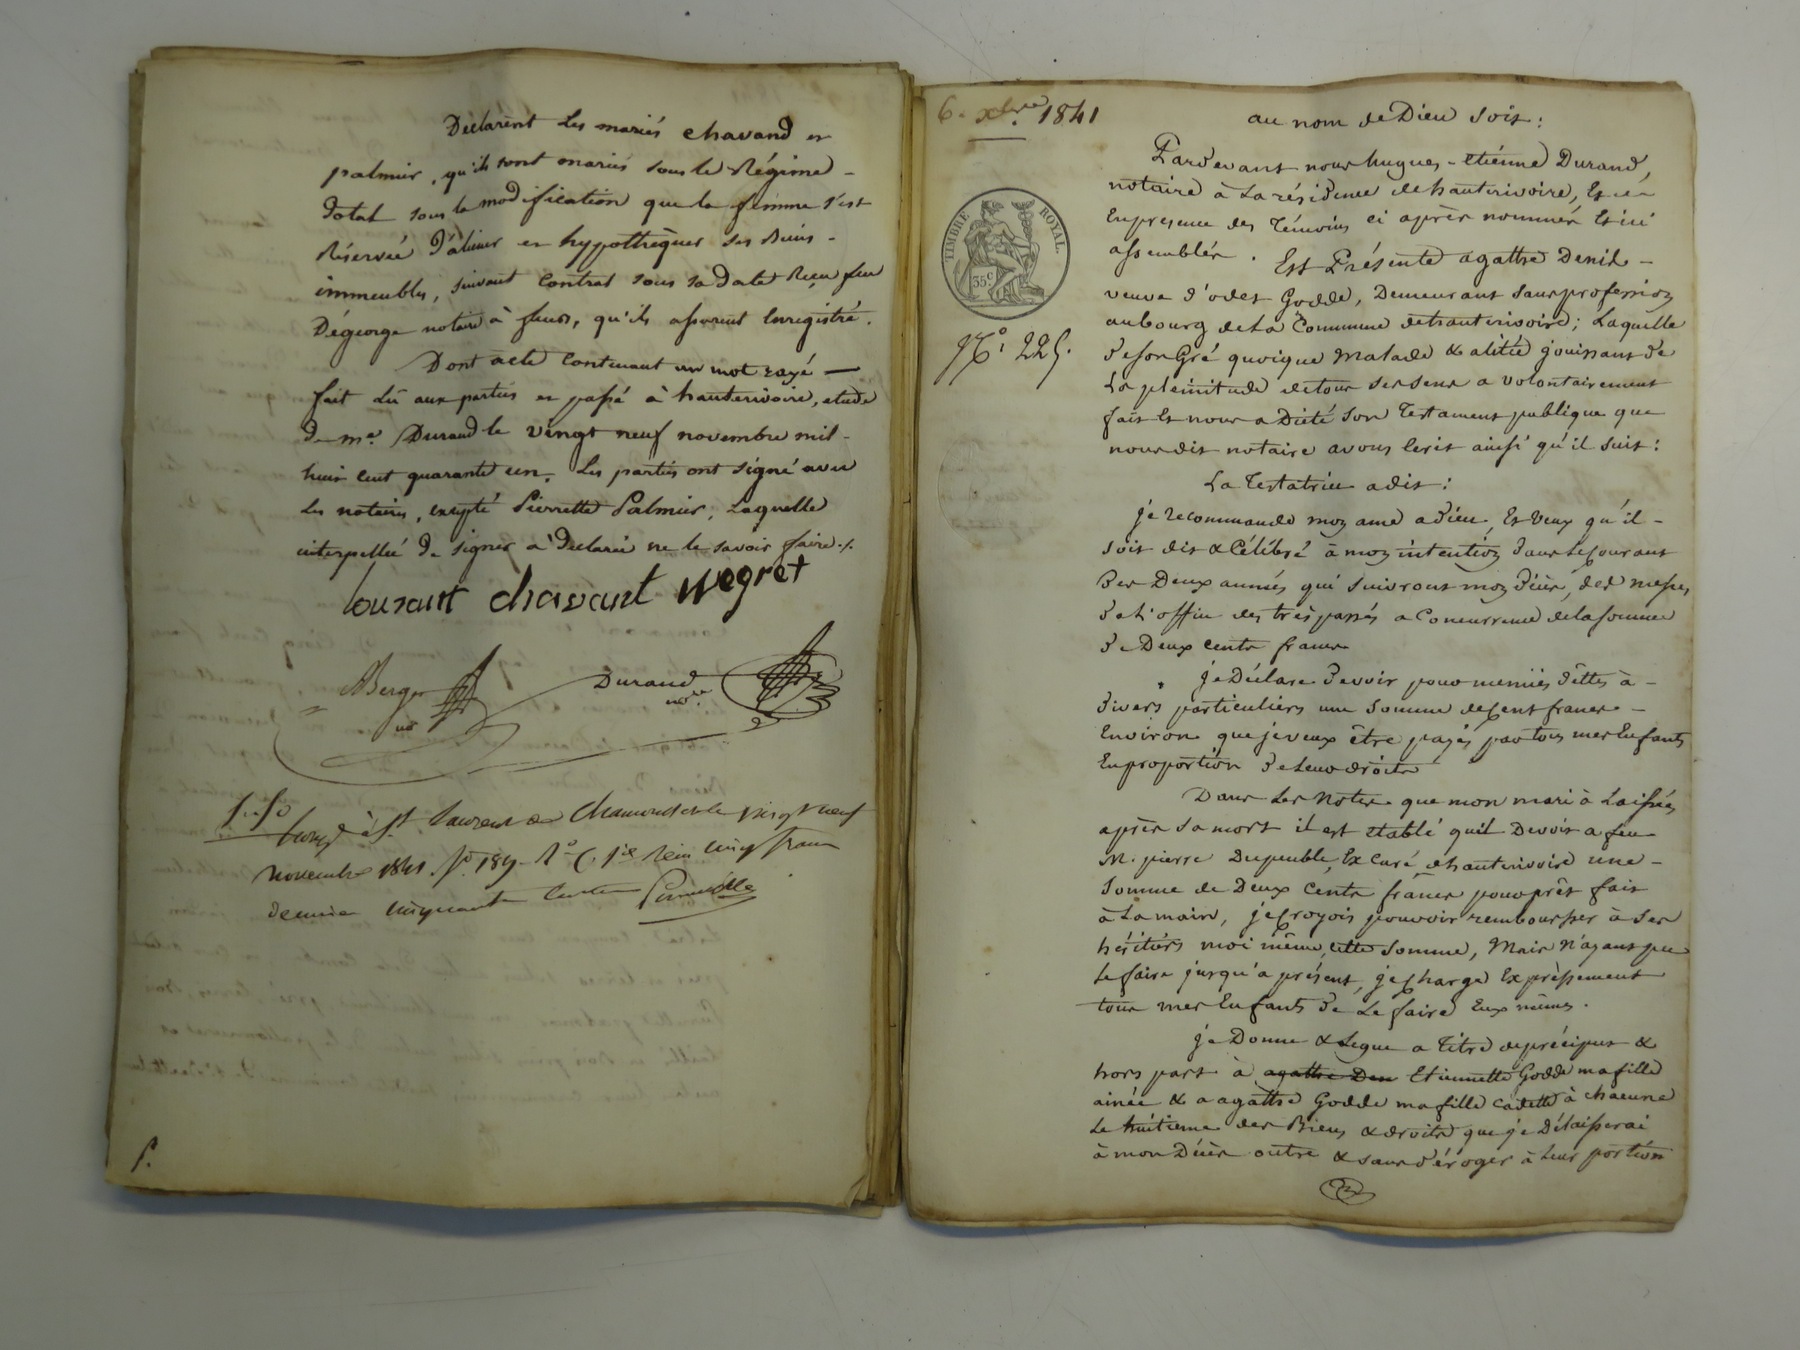 Déclarent les mariés chavand et
palmier, qu'ils sont mariés sous le Régime -
dotal sous la modification que la femme s'est
Réservée d'aliéner et hypothèquer ses Biens -
immeubles, suivant contrat sous sa date Reçu feu
Dégeorge notaire à, qu'ils assurent Enregistré.
Dont acte contenant un mot rayé —
fait lû aux parties et passé à hauterivoire, etude
de me. Durand le vingt neuf novembre mil-
huit cent quarante un. Les parties ont signé avec
les notaires, excepté Pierrette Palmier, Laquelle
interpellée de signer a déclaré ne le savoir faire./.
chavant Negret
Berger Durand
nre.
St Laurent de Chamousset le vingt neuf
novembre 1841. fo. 189. Ro C. 1re Reçu cinq francs
cinquante
P.
6. xbre 1841
au nom de Dieu soit:
TIMBRE ROYAL.
35c
No. 225.
Pardevant nous hugues-etiénne Durand,
notaire à La résidence de hauterivoire, Et en
En présence des Témoins ci après nommés Et ici
assemblés. Est Présente agatthe Denis -
veuve d'odet Godde, Demeurant sans profession
au bourg de La Commune de hauterivoire; Laquelle
de son Gré quoique Malade & alitée jouissant de
La pleinitude de tous ses sens a volontairement
fait Et nous a Dicté son Testament publique que
nous dit notaire avons Ecrit ainsi qu'il suit:
La Testatrice a dit:
je recommande mon ame a Dieu, Et Veux qu'il -
soit dit & Célébré à mon intention dans Le Courant
des Deux années qui suivront mon décès, des messes
de L'office des trèspassés a Concurrence de la somme
de Deux cents francs
je Déclare devoir pour menues dêttes à -
divers particuliers une somme de Cent francs -
Environ que je veux être payés par tous mes Enfants
En proportion de Leurs droits
Dans Les Notes que mon mari à Laissées
après sa mort il est etablé quil Devoit a feu
M. pierre Dupeuble, Ex Curé d'hauterivoire une -
somme de Deux Cents francs pour prêt fait
à La main, je Croyois pouvoir rembourser à ses
héritiers moi même cette somme, Mais n'ayant pu
Le faire jusqu'a présent, je Charge Expréssement
tous mes Enfants de Le faire Eux mêmes.
je Donne & Legue a Titre de précipus &
hors part à agatthe Den Etiennette Godde ma fille
ainée & a agatthe Godde ma fille cadette à chacune
Le huitième des Biens & droits que je Délaisserai
à mon Décès outre & sans déroger à Leur portion